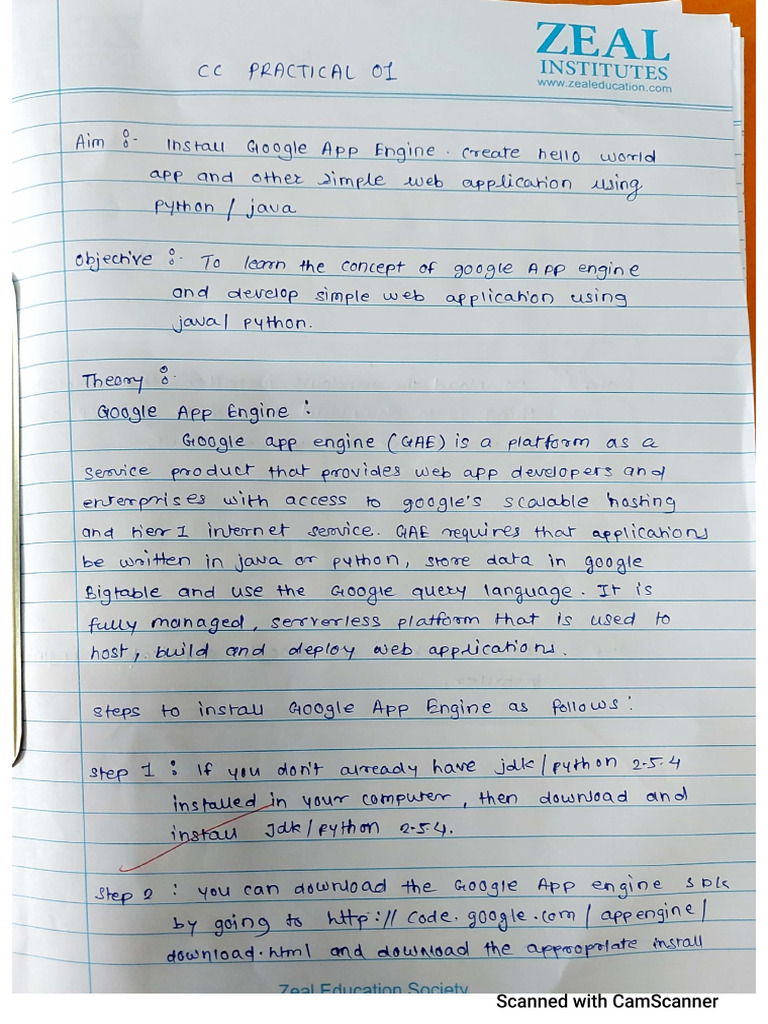 ZEAL
INSTITUTES
www.zealeducation.com
CC PRACTICAL 01
Aim :- Install Google App Engine. Create hello world
app and other simple web application using
python / java
Objective :- To learn the concept of google App engine
and develop simple web application using
java/ python.
Theory :-
Google App Engine :
Google app engine (GAE) is a platform as a
service product that provides web app developers and
enterprises with access to google's scalable hosting
and tier 1 internet service. GAE requires that applications
be written in java or python, store data in google
Bigtable and use the Google query language. It is
fully managed, serverless platform that is used to
host, build and deploy web applications.
Steps to install Google App Engine as follows:
Step 1 : If you don't already have jdk/python 2.5.4
installed in your computer, then download and
install Jdk/python 2.5.4.
Step 2 : you can download the Google App engine SDK
by going to http://code.google.com/appengine/
download.html and download the appropriate install
Zeal Education Society
Scanned with CamScanner